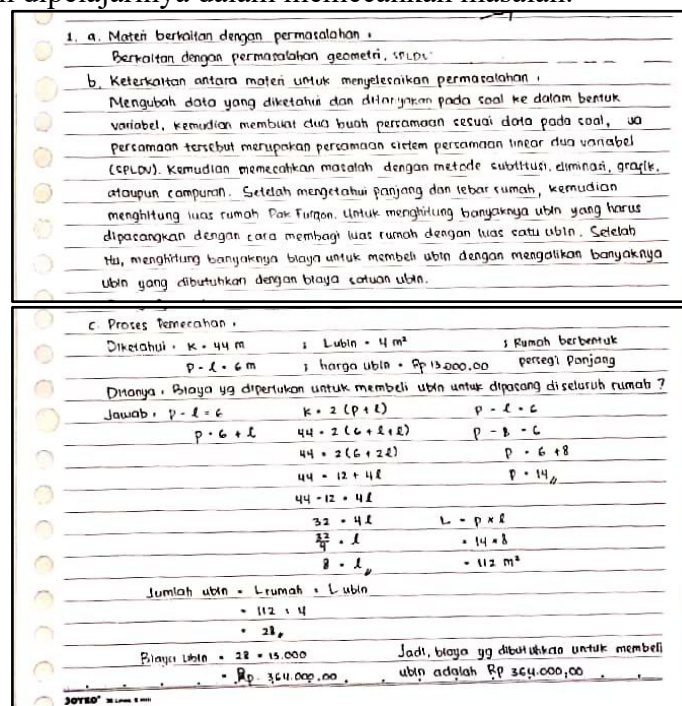 dipelajarinya dalam memecahkan masalah.
1. a. Materi berkaitan dengan permasalahan :
Berkaitan dengan permasalahan geometri, SPLDV
b. Keterkaitan antara materi untuk menyelesaikan permasalahan :
Mengubah data yang diketahui dan ditanyakan pada soal ke dalam bentuk
variabel, kemudian membuat dua buah persamaan sesuai data pada soal,
persamaan tersebut merupakan persamaan sistem persamaan linear dua variabel
(SPLDV). Kemudian memecahkan masalah dengan metode subtitusi, eliminasi, grafik,
ataupun campuran. Setelah mengetahui panjang dan lebar rumah, kemudian
menghitung luas rumah Pak Furqon. Untuk menghitung banyaknya ubin yang harus
dipasangkan dengan cara membagi luas rumah dengan luas satu ubin. Setelah
itu, menghitung banyaknya biaya untuk membeli ubin dengan mengalikan banyaknya
ubin yang dibutuhkan dengan biaya satuan ubin.
c. Proses Pemecahan :
Diketahui : K = 44 m ; L ubin = 4 m² ; Rumah berbentuk
p - l = 6 m ; harga ubin = Rp 13.000,00 persegi panjang
Ditanya : Biaya yg diperlukan untuk membeli ubin untuk dipasang di seluruh rumah ?
Jawab : p - l = 6 K = 2 (p + l) p - l = 6
p = 6 + l 44 = 2 (6 + l + l) p - 8 = 6
44 = 2 (6 + 2l) p = 6 + 8
44 = 12 + 4l p = 14
44 - 12 = 4l
32 = 4l L = p x l
32/4 = l = 14 x 8
8 = l = 112 m²
Jumlah ubin = L rumah : L ubin
= 112 : 4
= 28
Biaya ubin = 28 × 13.000 Jadi, biaya yg dibutuhkan untuk membeli
= Rp. 364.000,00 ubin adalah Rp 364.000,00
JOYKO